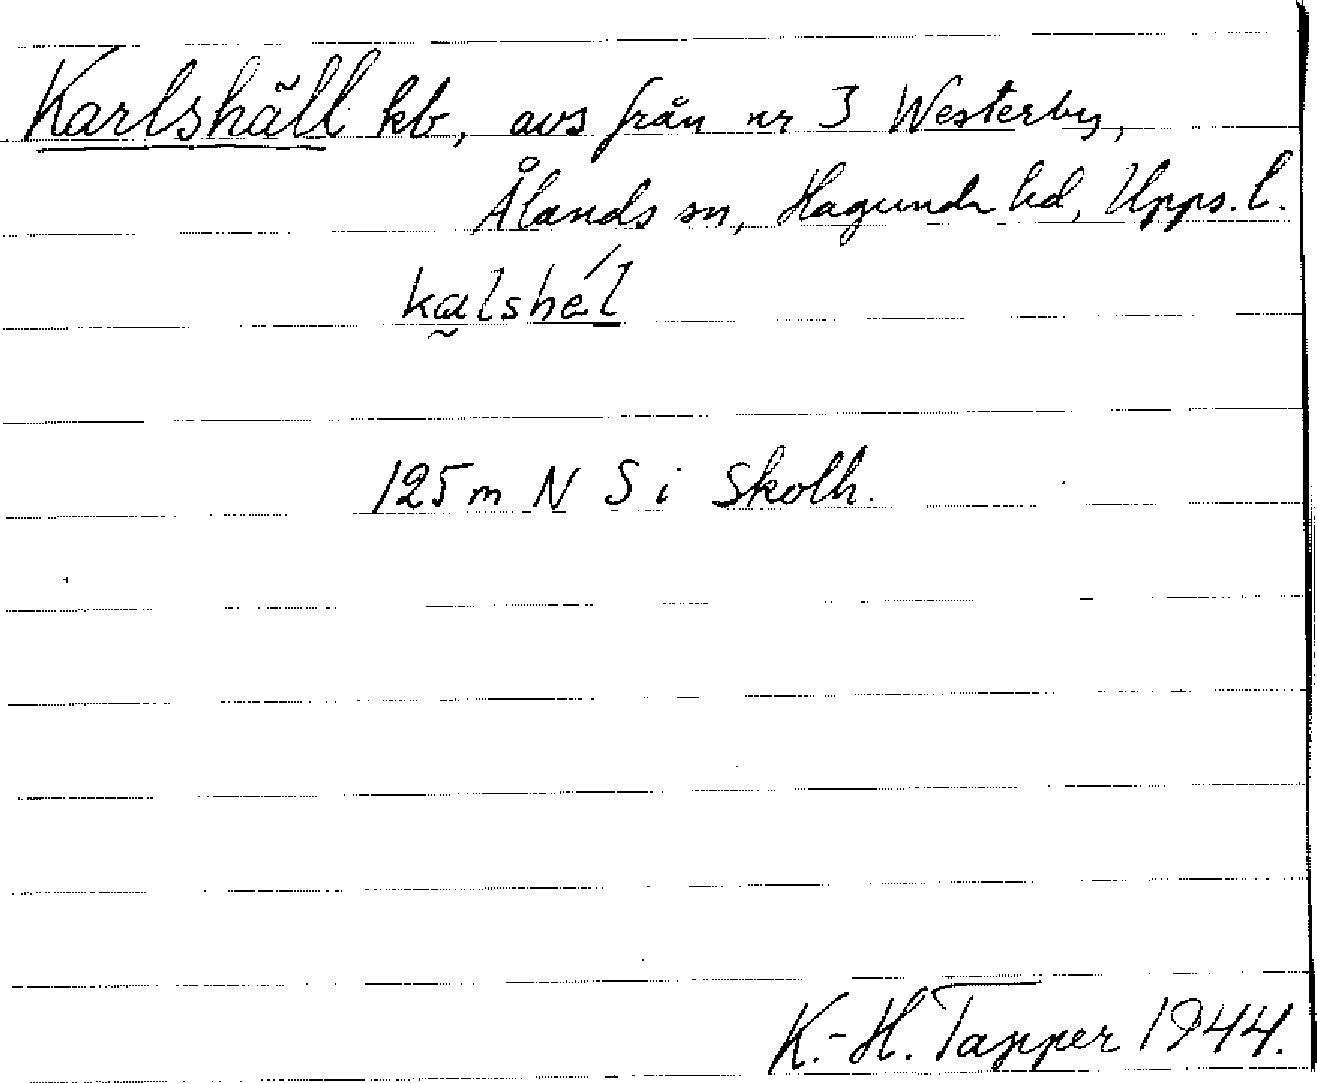 Karlshäll kb, avs från nr 3 Westerby,
Ålands sn, Hagunda hd, Upps. l.
ka̰lshél
125 m N S i Skolh.
K.-H. Tapper 1944.